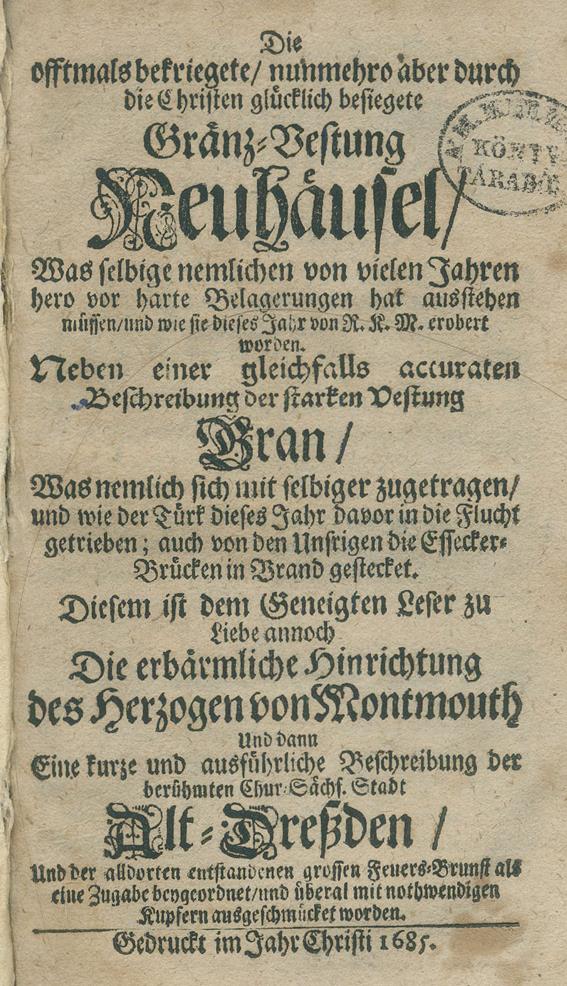 Die
offtmals bekriegete/ nunmehro aber durch
die Christen glücklich besiegete
Gränz-Vestung
Neuhäusel/
Was selbige nemlichen von vielen Jahren
hero vor harte Belagerungen hat ausstehen
müssen/und wie sie dieses Jahr von R. K. M. erobert
worden.
Neben einer gleichfalls accuraten
Beschreibung der starken Vestung
Gran/
Was nemlich sich mit selbiger zugetragen/
und wie der Türk dieses Jahr davor in die Flucht
getrieben; auch von den Unsrigen die Essecker-
Brücken in Brand gestecket.
Diesem ist dem Geneigten Leser zu
Liebe annoch
Die erbärmliche Hinrichtung
des Herzogen von Montmouth
Und dann
Eine kurze und ausführliche Beschreibung der
berühmten Chur-Sächs. Stadt
Alt-Dreßden/
Und der alldorten entstandenen grossen Feuers-Brunst als
eine Zugabe beygeordnet/und überal mit nothwendigen
Kupfern ausgeschmücket worden.
Gedruckt im Jahr Christi 1685.
KÖNYV
TÁRÁBÓL